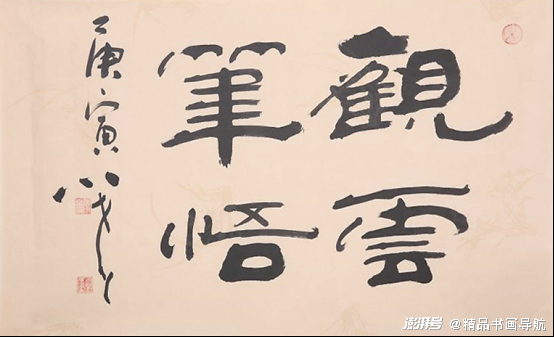 觀雲
筆悟
庚寅
澎湃号 @精品书画导航